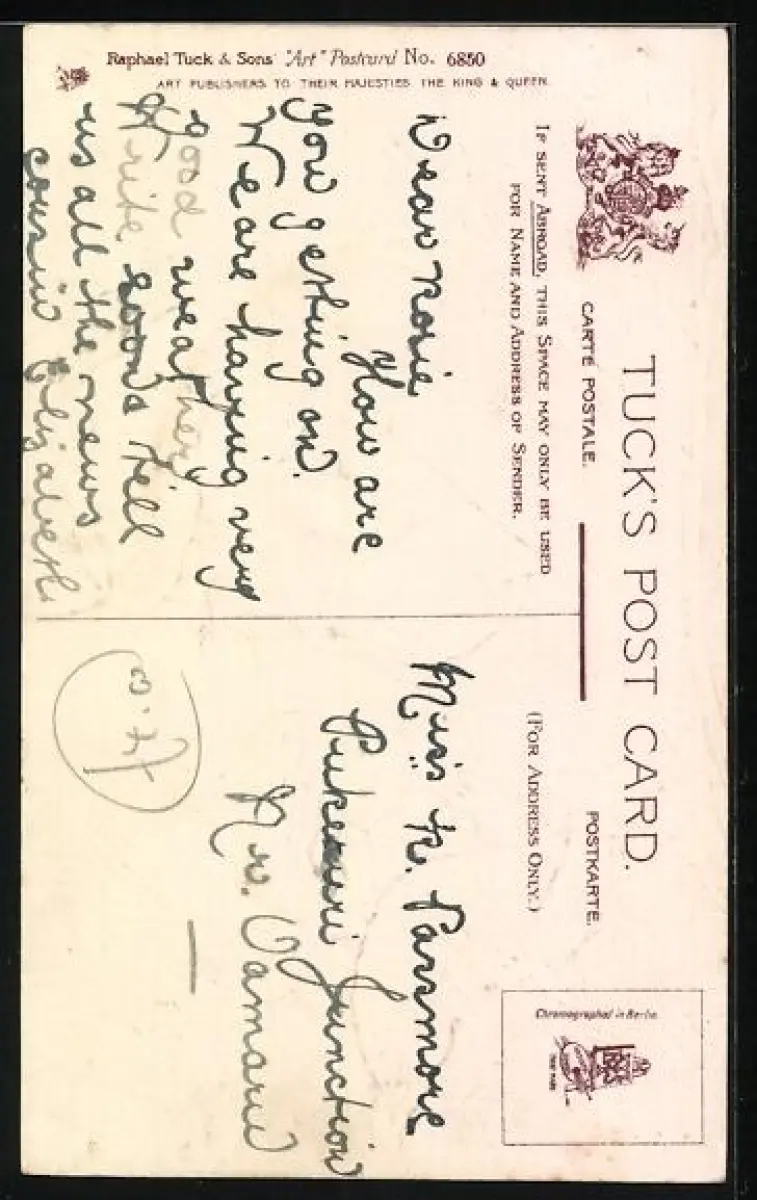 Raphael Tuck & Sons' "Art" Postcard No. 6850
ART PUBLISHERS TO THEIR MAJESTIES THE KING & QUEEN
TUCK'S POST CARD.
CARTE POSTALE.
POSTKARTE.
IF SENT ABROAD, THIS SPACE MAY ONLY BE USED
FOR NAME AND ADDRESS OF SENDER.
(FOR ADDRESS ONLY.)
Chromographed in Berlin
Dear Rosie
How are
you getting on.
We are having very
good weather
Write soon & tell
us all the news
cousin Elizabeth
Miss R. Passmore
Pukeuri Junction
Nr. Oamaru